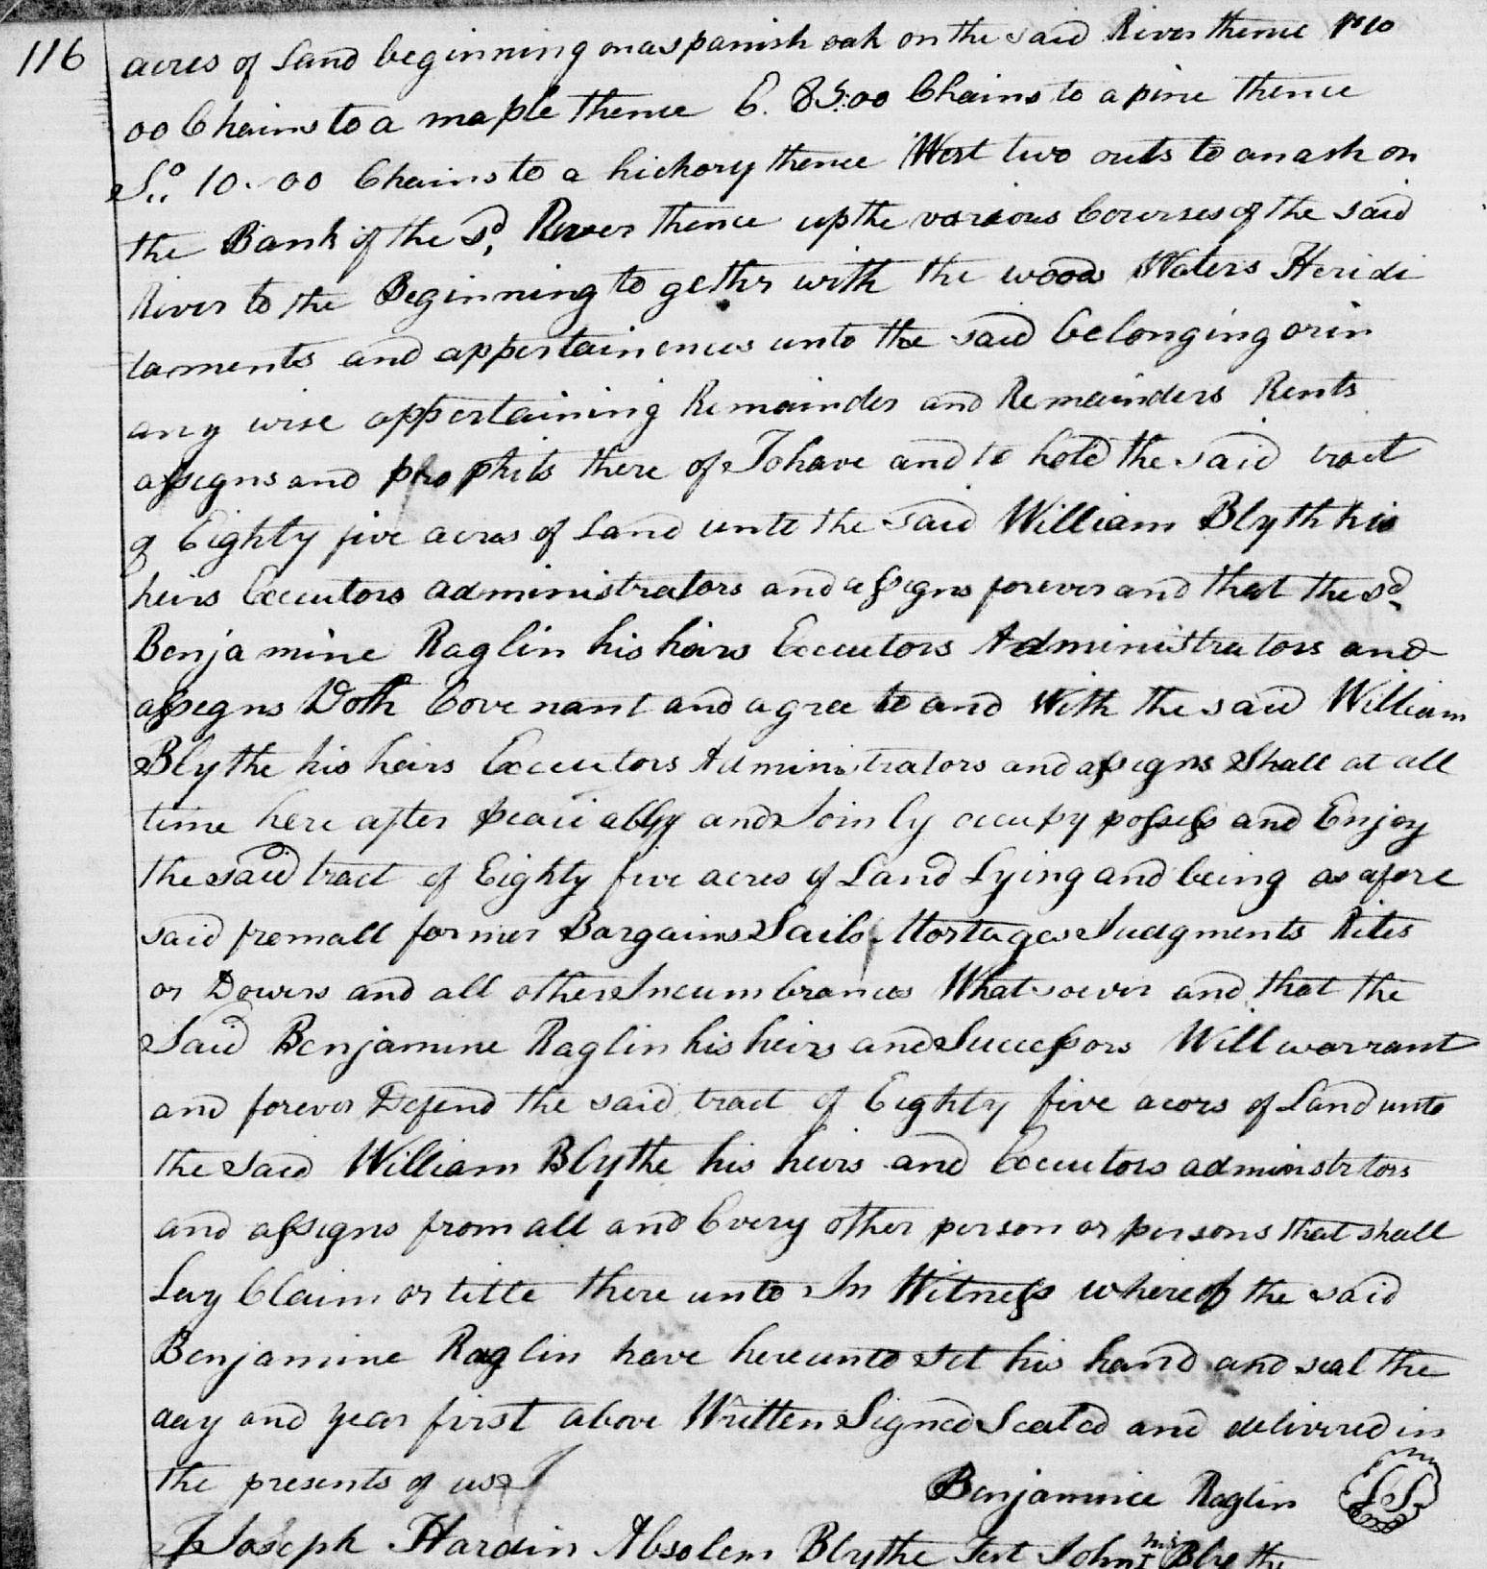 116
acres of Land beginning on a spanish oak on the said River thence No 10
00 Chains to a maple thence E. 85:00 Chains to a pine thence
So. 10..00 Chains to a hickory thence West two outs to an ash on
the Bank of the sd. River thence up the various Courses of the said
River to the Beginning to gether with the woods Waters Heridi
taments and appertainences unto the said belonging or in
any wise appertaining Remainder and Remainders Rents
assigns and prophits there of To have and to hold the said tract
of Eighty five acres of Land unto the said William Blyth his
heirs Executors administrators and assigns forever and that the sd.
Benjamine Raglin his heirs Executors Administrators and
assigns Doth Covenant and agree to and With the said William
Blythe his heirs Executors Administrators and assigns Shall at all
time here after peaciably and Join ly occupy possess and Enjoy
the said tract of Eighty five acres of Land Lying and being as afore
said from all former Bargains Sails Mortages Judgments Rites
or Dowers and all other Incumbrances What soever and that the
Said Benjamine Raglin his heirs and Successors Will warrant
and forever Defend the said tract of Eighty five acors of Land unto
the said William Blythe his heirs and Executors adminstrtors
and assigns from all and Every other person or persons that shall
Lay Claim or title there unto In Witness whereof the said
Benjamine Raglin have hereunto set his hand and seal the
day and year first above Written Signed Sealed and delivered in
the presents of us
Benjamine Raglin LS
Joseph Hardin Absolem Blythe Test John his Blythe